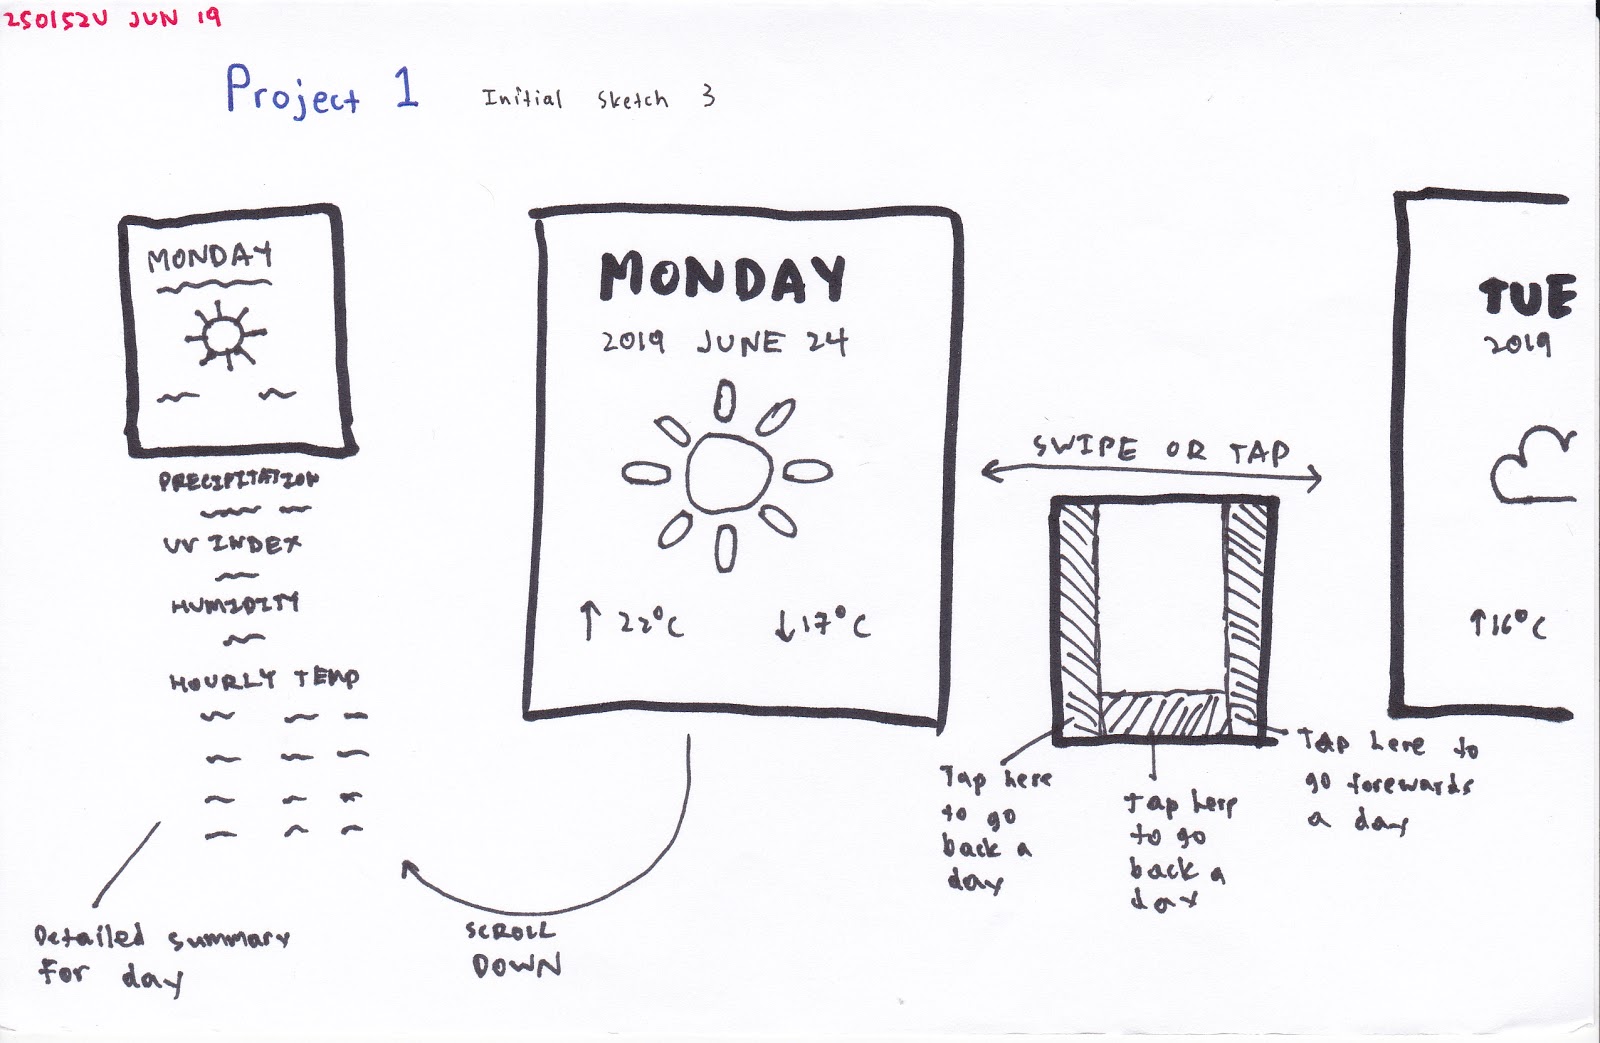 250152U JUN 19
Project 1 Initial Sketch 3
MONDAY
PRECIPITATION
UV INDEX
HUMIDITY
HOURLY TEMP
Detailed summary
for day
MONDAY
2019 JUNE 24
↑ 22°C ↓ 17°C
SCROLL
DOWN
SWIPE OR TAP
Tap here
to go
back a
day
Tap here
to go
back a
day
Tap here to
go forewards
a day
TUE
2019
↑16°C